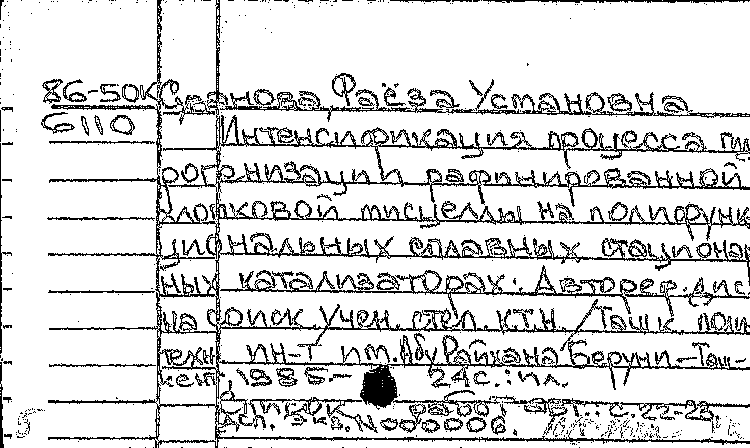 86-50к Суванова, Раёза Установна
6110 Интенсификация процесса гид
рогенизации рафинированной
хлопковой мисцеллы на полифунк
циональных сплавных стационар
ных катализаторах: Автореф. дис.
на соиск. учен. степ. к.т.н. / Ташк. поли
техн. ин-т им. Абу Райхана Беруни. - Таш-
кент, 1985. - 24 с.: ил.
Список работ авт.: с. 22-23
Дсп. Экз. N000006.
5